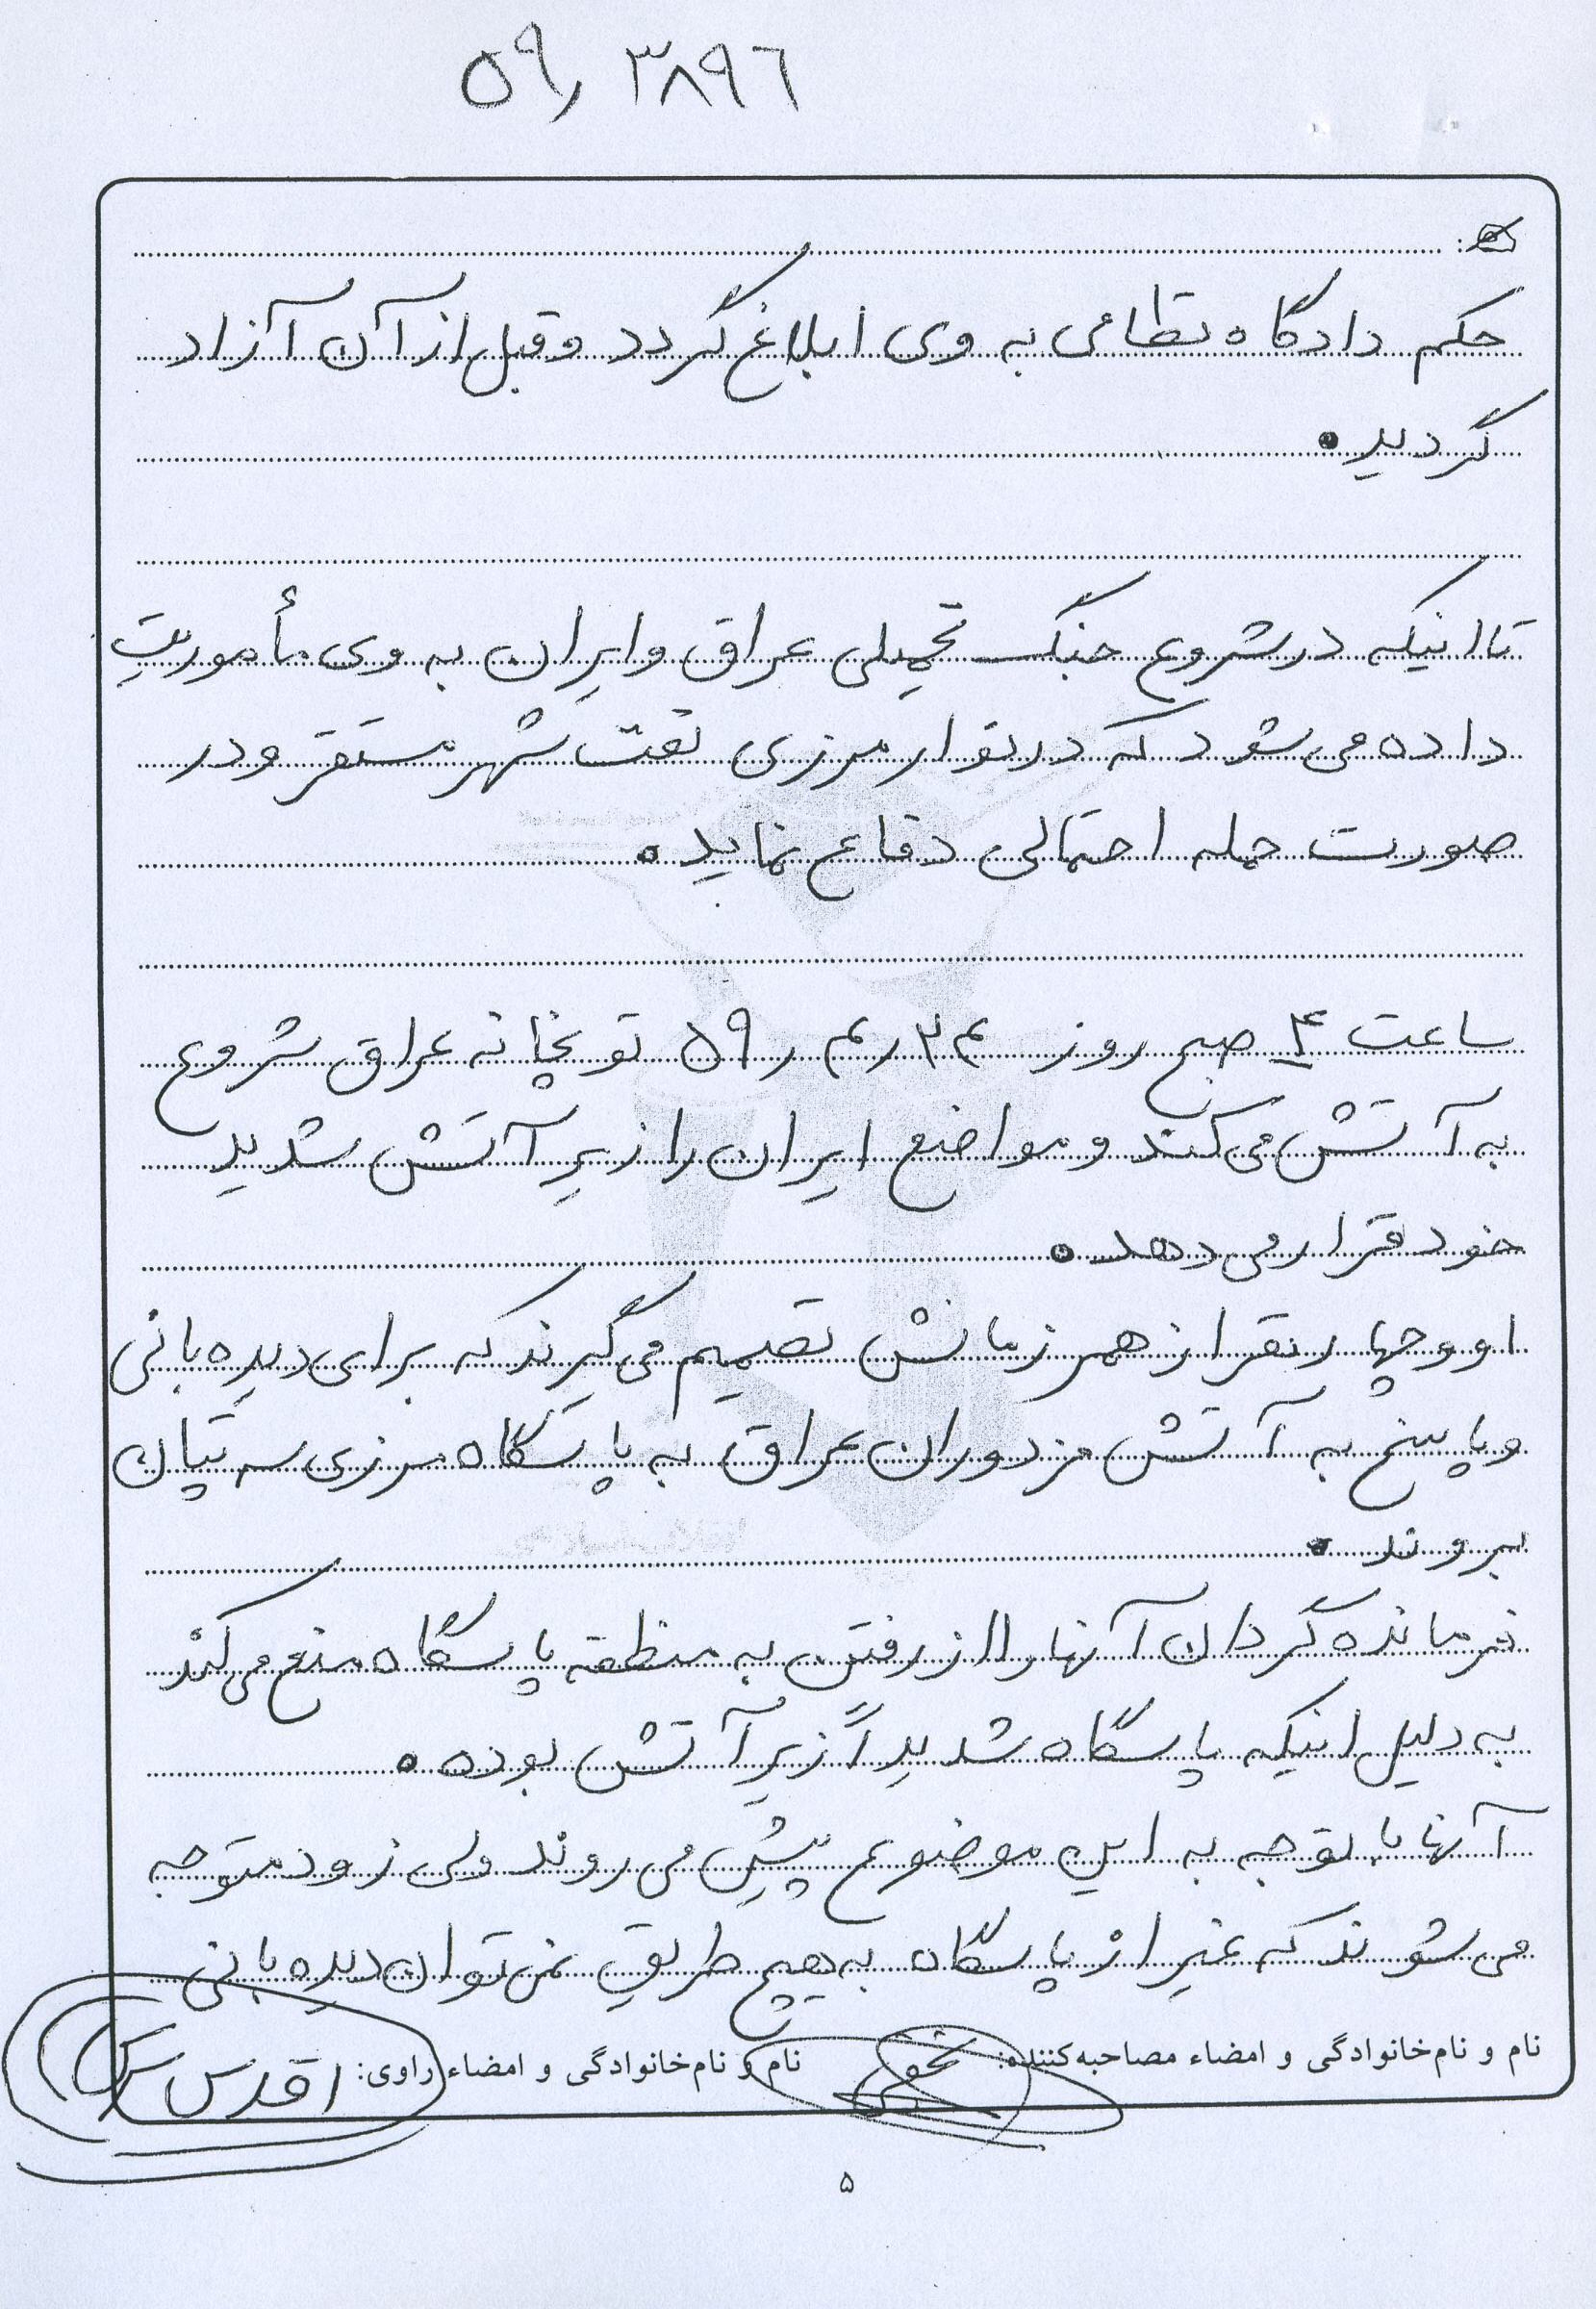 ۵۹ر ۳۸۹۶
حکم دادگاه نظامی به وی ابلاغ گردد و قبل از آن آزاد
گردید.
تا اینکه در شروع جنگ تحمیلی عراق و ایران به وی مأموریت
داده می شود که در نوار مرزی نفت شهر مستقر و در
صورت حمله احتمالی دفاع نماید.
ساعت ۴ صبح روز ۲۴ر۴ر۵۹ توپخانه عراق شروع
به آتش می کند و مواضع ایران را زیر آتش شدید
خود قرار می دهد.
او و چهار نفر از همرزمانش تصمیم می گیرند که برای دیده بانی
و پاسخ به آتش مزدوران عراق به پاسگاه مرزی سه تپان
بروند.
فرمانده گردان آنها را از رفتن به منطقه پاسگاه منع می کند
به دلیل اینکه پاسگاه شدیداً زیر آتش بوده.
آنها با توجه به این موضوع پیش می روند ولی زود متوجه
می شوند که غیر از پاسگاه به هیچ طریق نمی توان دیده بانی
نام و نام‌خانوادگی و امضاء مصاحبه‌کننده:
نام و نام‌خانوادگی و امضاء راوی: اقدس
۵